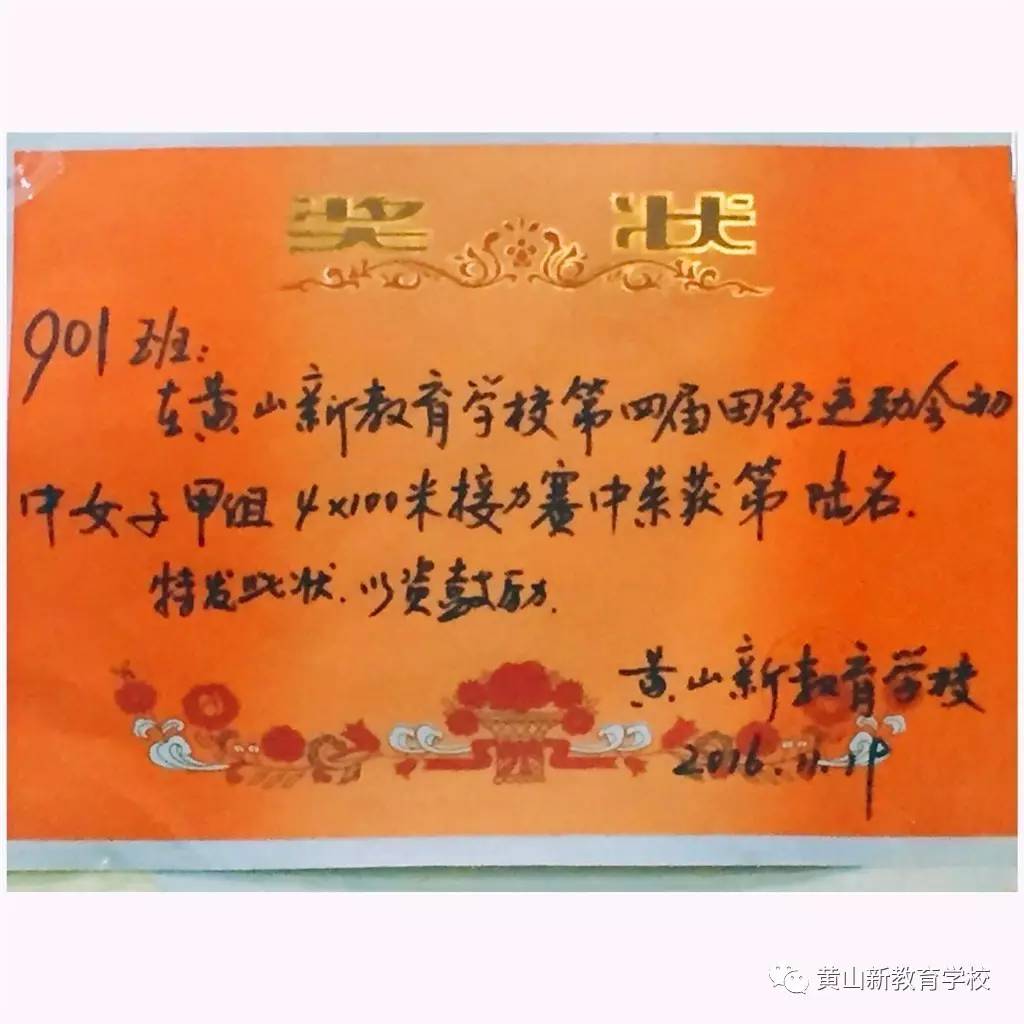 奖状
901班:
在黄山新教育学校第四届田径运动会初
中女子甲组4×100米接力赛中荣获第陆名.
特发此状.以资鼓励.
黄山新教育学校
2016.11.
黄山新教育学校